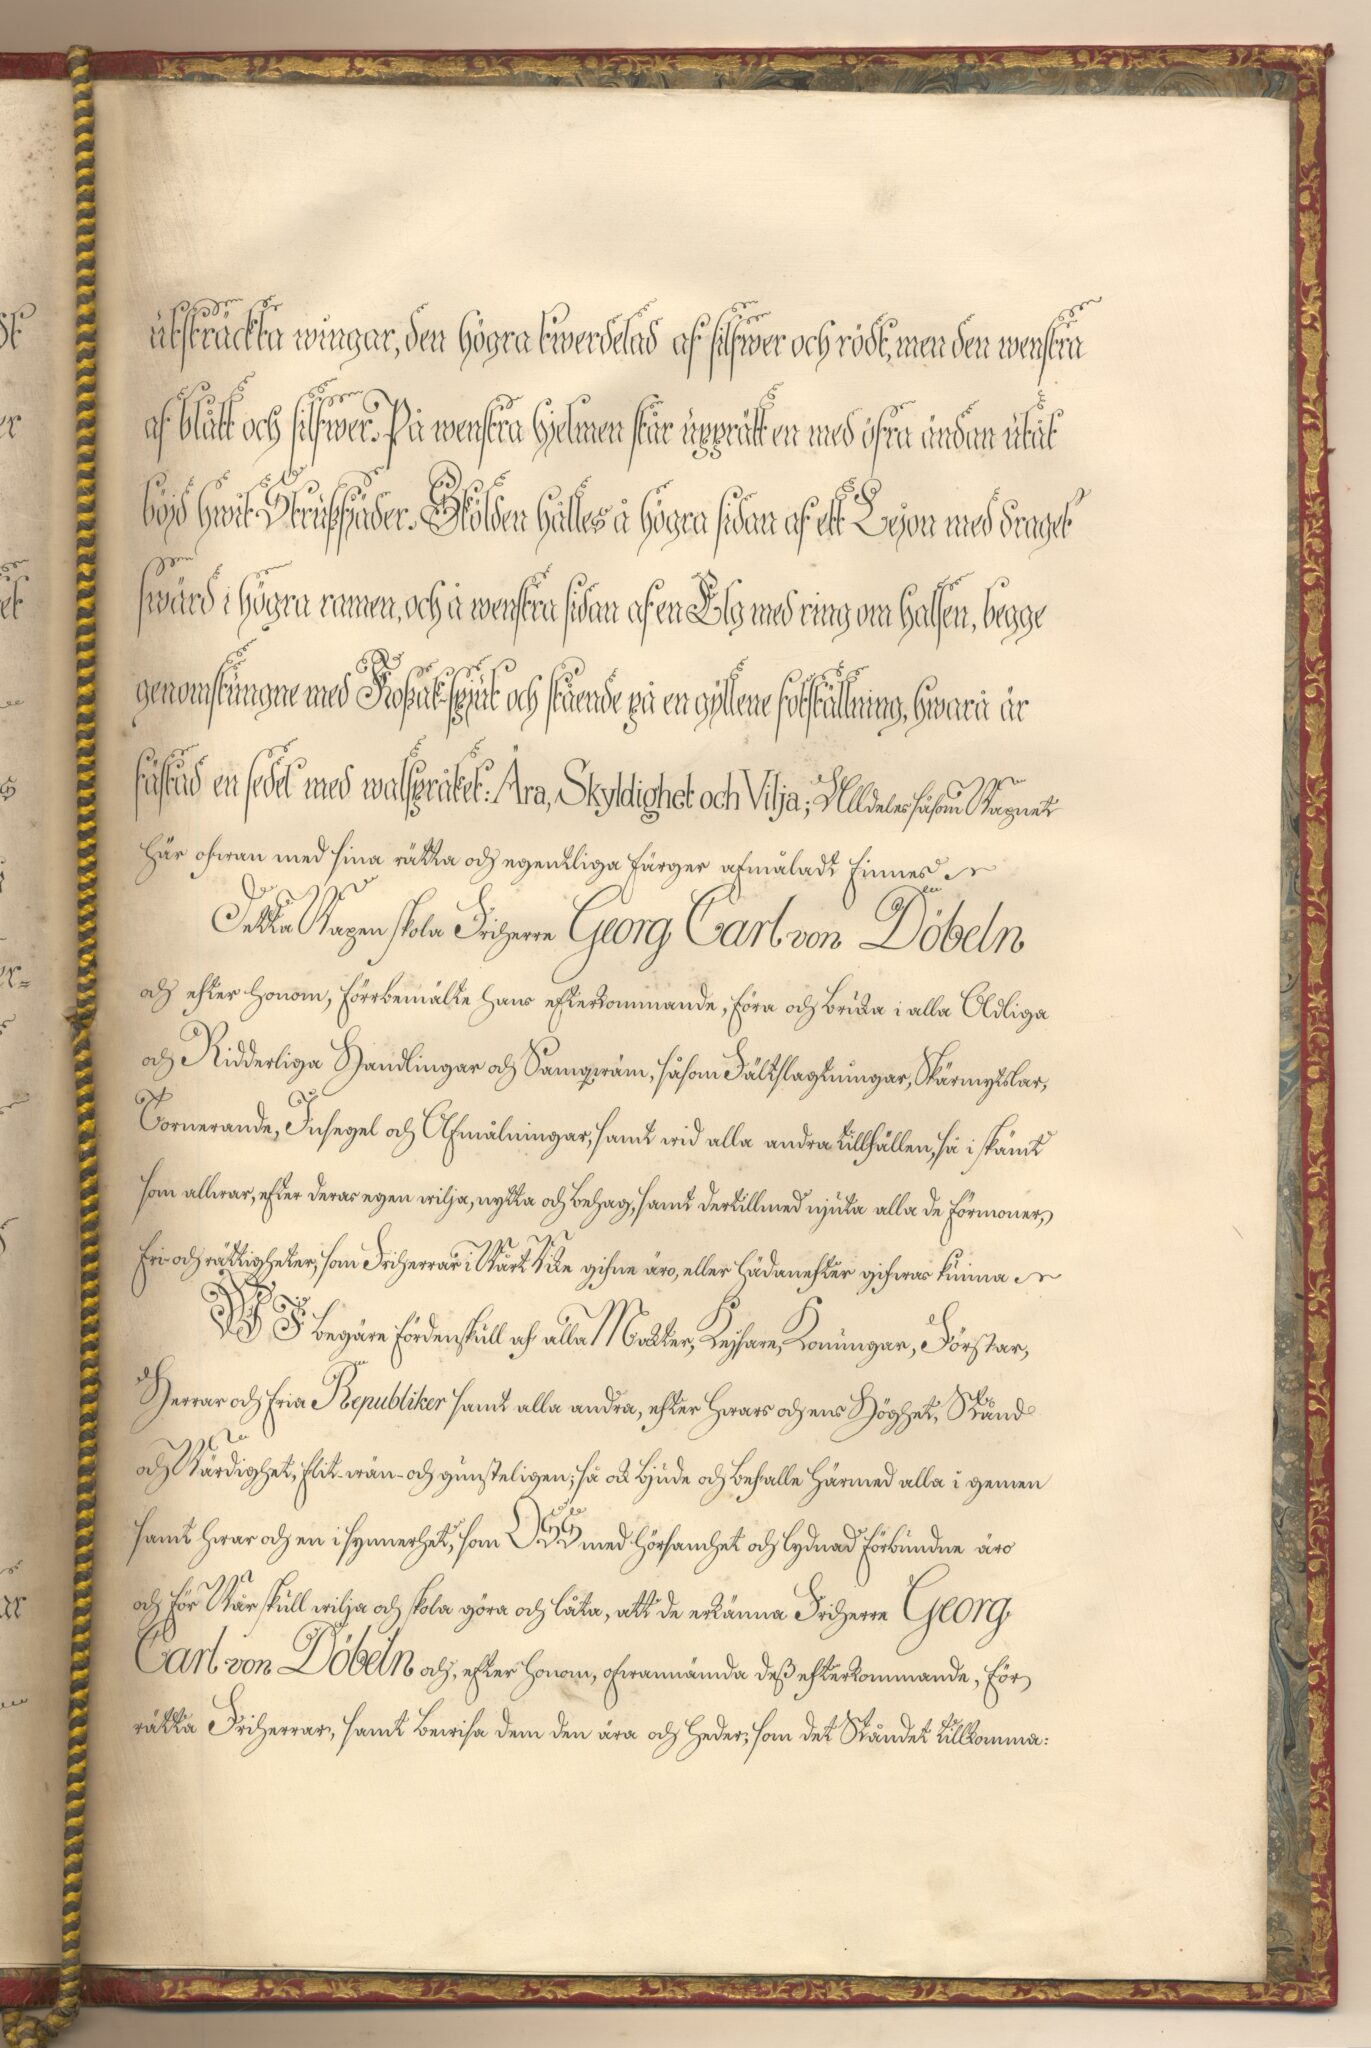 utsträckta wingar, den högra kwerdelad af silfwer och rödt, men den wenstra
af blått och silfwer. På wenstra hjelmen står upprätt en med öfra ändan utåt
böjd hwit Strutsfjäder. Skölden hålles å högra sidan af ett Lejon med draget
swärd i högra ramen, och å wenstra sidan af en Elg med ring om halsen, begge
genomstungne med Kossak-spjut och stående på en gyllene fotställning, hwarå är
fästad en sedel med walspråket: Ära, Skyldighet och Vilja; Alldeles såsom Wapnet
här ofwan med sina rätta och egentliga färger afmåladt finnes
Detta Wapen skola Friherre Georg Carl von Döbeln
och efter honom, förrbemälte hans efterkommande, föra och bruka i alla Adliga
och Ridderliga Handlingar och Samqwäm, såsom Fältslagtningar, Skärmytslar,
Tornerande, Insegel och Afmålningar, samt wid alla andra tillfällen, så i skämt
som allwar, efter deras egen wilja, nytta och behag, samt dertillmed njuta alla de förmoner,
fri- och rättigheter, som Friherrar i Wårt Rike gifne äro, eller hädanefter gifwas kunna
WI begäre fördenskull af alla Makter, Kejsare, Konungar, Förstar,
Herrar och fria Republiker samt alla andra, efter hwars och ens Höghet, Stånd
och Wärdighet, flit- wän- och gunsteligen; så ock bjude och befalle härmed alla i gemen
samt hwar och en i synnerhet, som OSS med hörsamhet och lydnad förbundne äro
och för Wår skull wilja och skola göra och låta, att de erkänna Friherre Georg
Carl von Döbeln och, efter honom, ofwannämda deß efterkommande, för
rätta Friherrar, samt bewisa dem den ära och heder, som det Ståndet tillkomma: